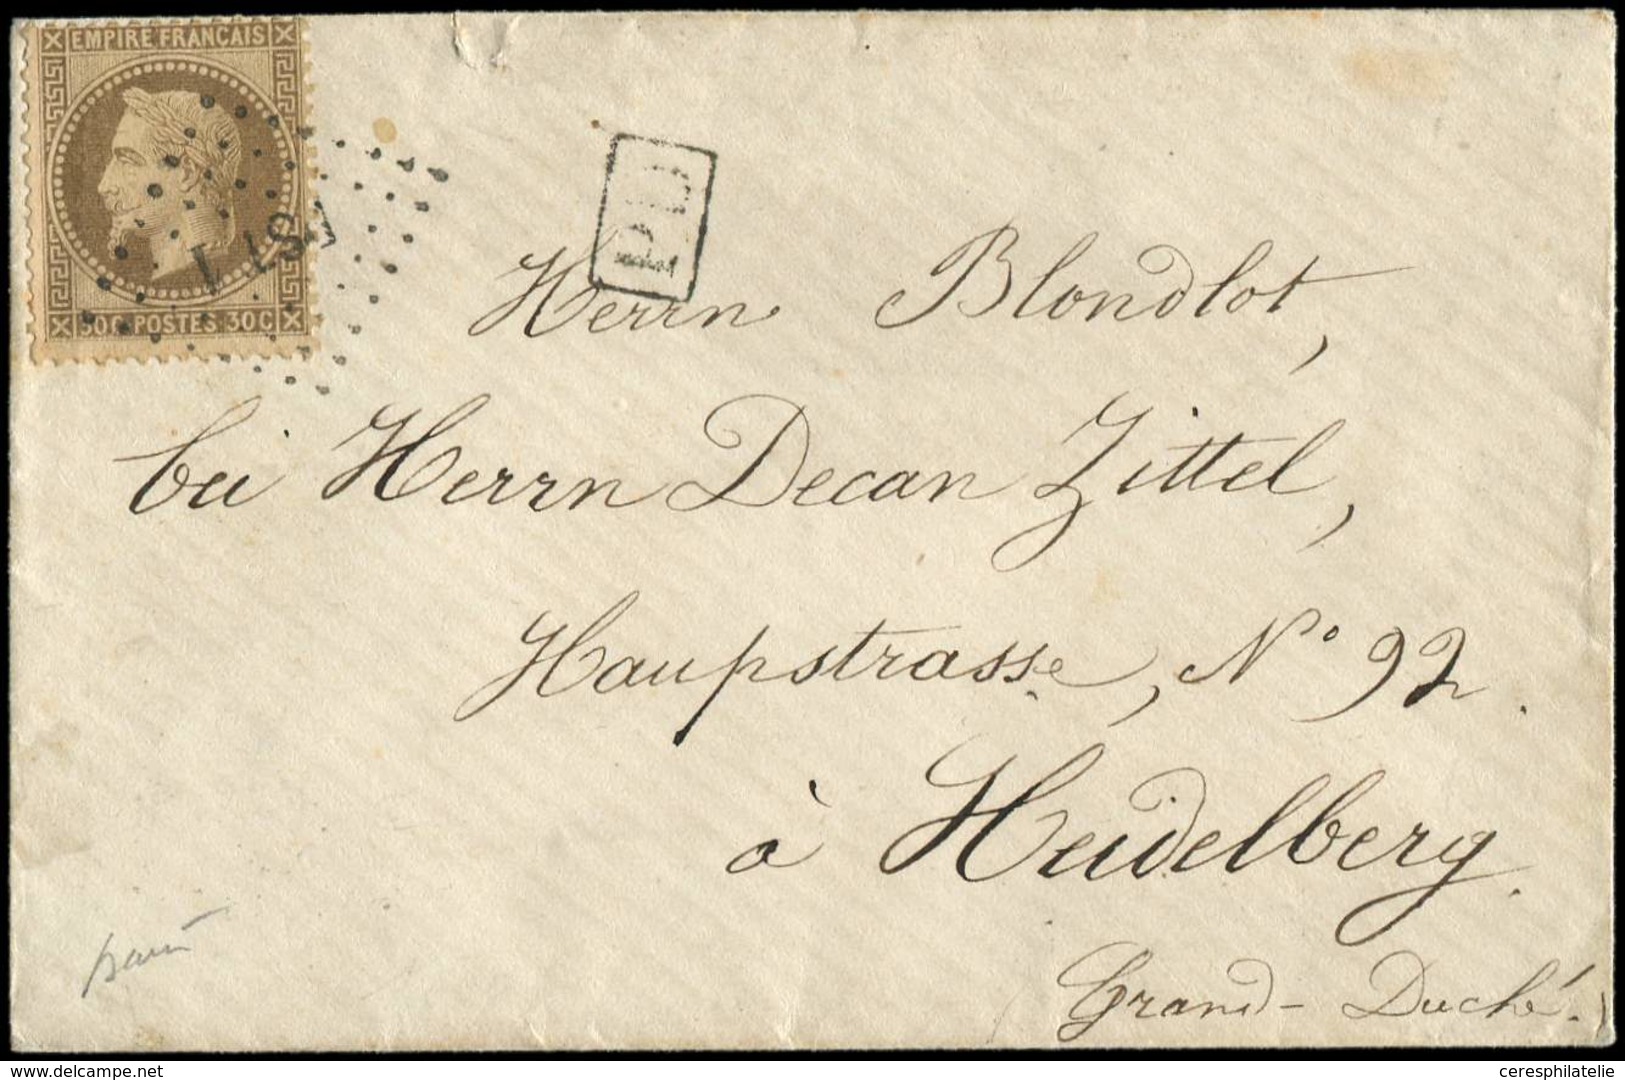 EMPIRE FRANÇAIS
30C POSTES 30C
PD
Herrn Blondlot,
bei Herrn Decan Zittel,
Haupstrasse, N° 92.
à Heidelberg.
(Grand-Duché.)
www.delcampe.net
ceresphilatelie